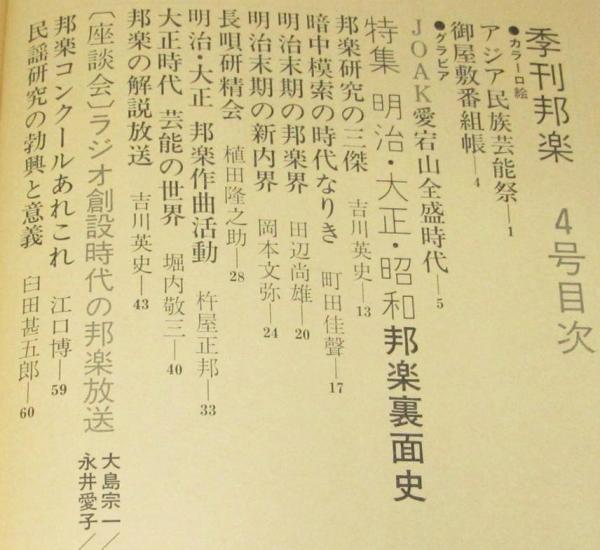 季刊邦楽 4号目次
●カラー口絵
アジア民族芸能祭—1
御屋敷番組帳—4
●グラビア
JOAK愛宕山全盛時代—5
特集 明治・大正・昭和邦楽裏面史
邦楽研究の三傑 吉川英史—13
暗中模索の時代なりき 町田佳聲—17
明治末期の邦楽界 田辺尚雄—20
明治末期の新内界 岡本文弥—24
長唄研精会 植田隆之助—28
明治・大正 邦楽作曲活動 杵屋正邦—33
大正時代 芸能の世界 堀内敬三—40
邦楽の解説放送 吉川英史—43
〔座談会〕ラジオ創設時代の邦楽放送 大島宗一/
永井愛子/
邦楽コンクールあれこれ 江口博—59
民謡研究の勃興と意義 臼田甚五郎—60